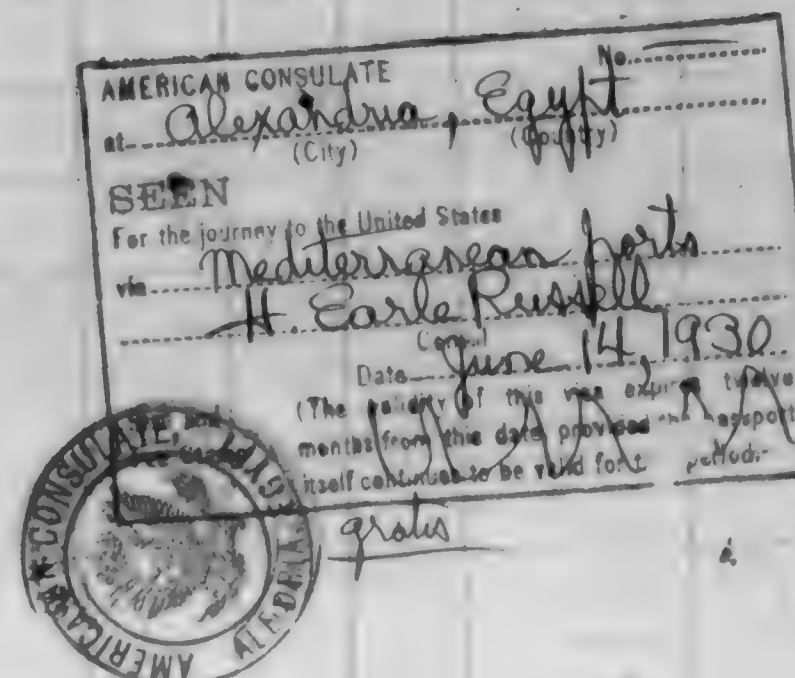 AMERICAN CONSULATE No.
at Alexandria, Egypt
(City) (Country)
SEEN
For the journey to the United States
via Mediterranean ports
H. Earle Russell
Consul
Date June 14, 1930
(The validity of this visa expires twelve
months from this date provided the passport
itself continues to be valid for t period.
gratis
AMERICAN CONSULATE, ALEXANDRIA, EGYPT